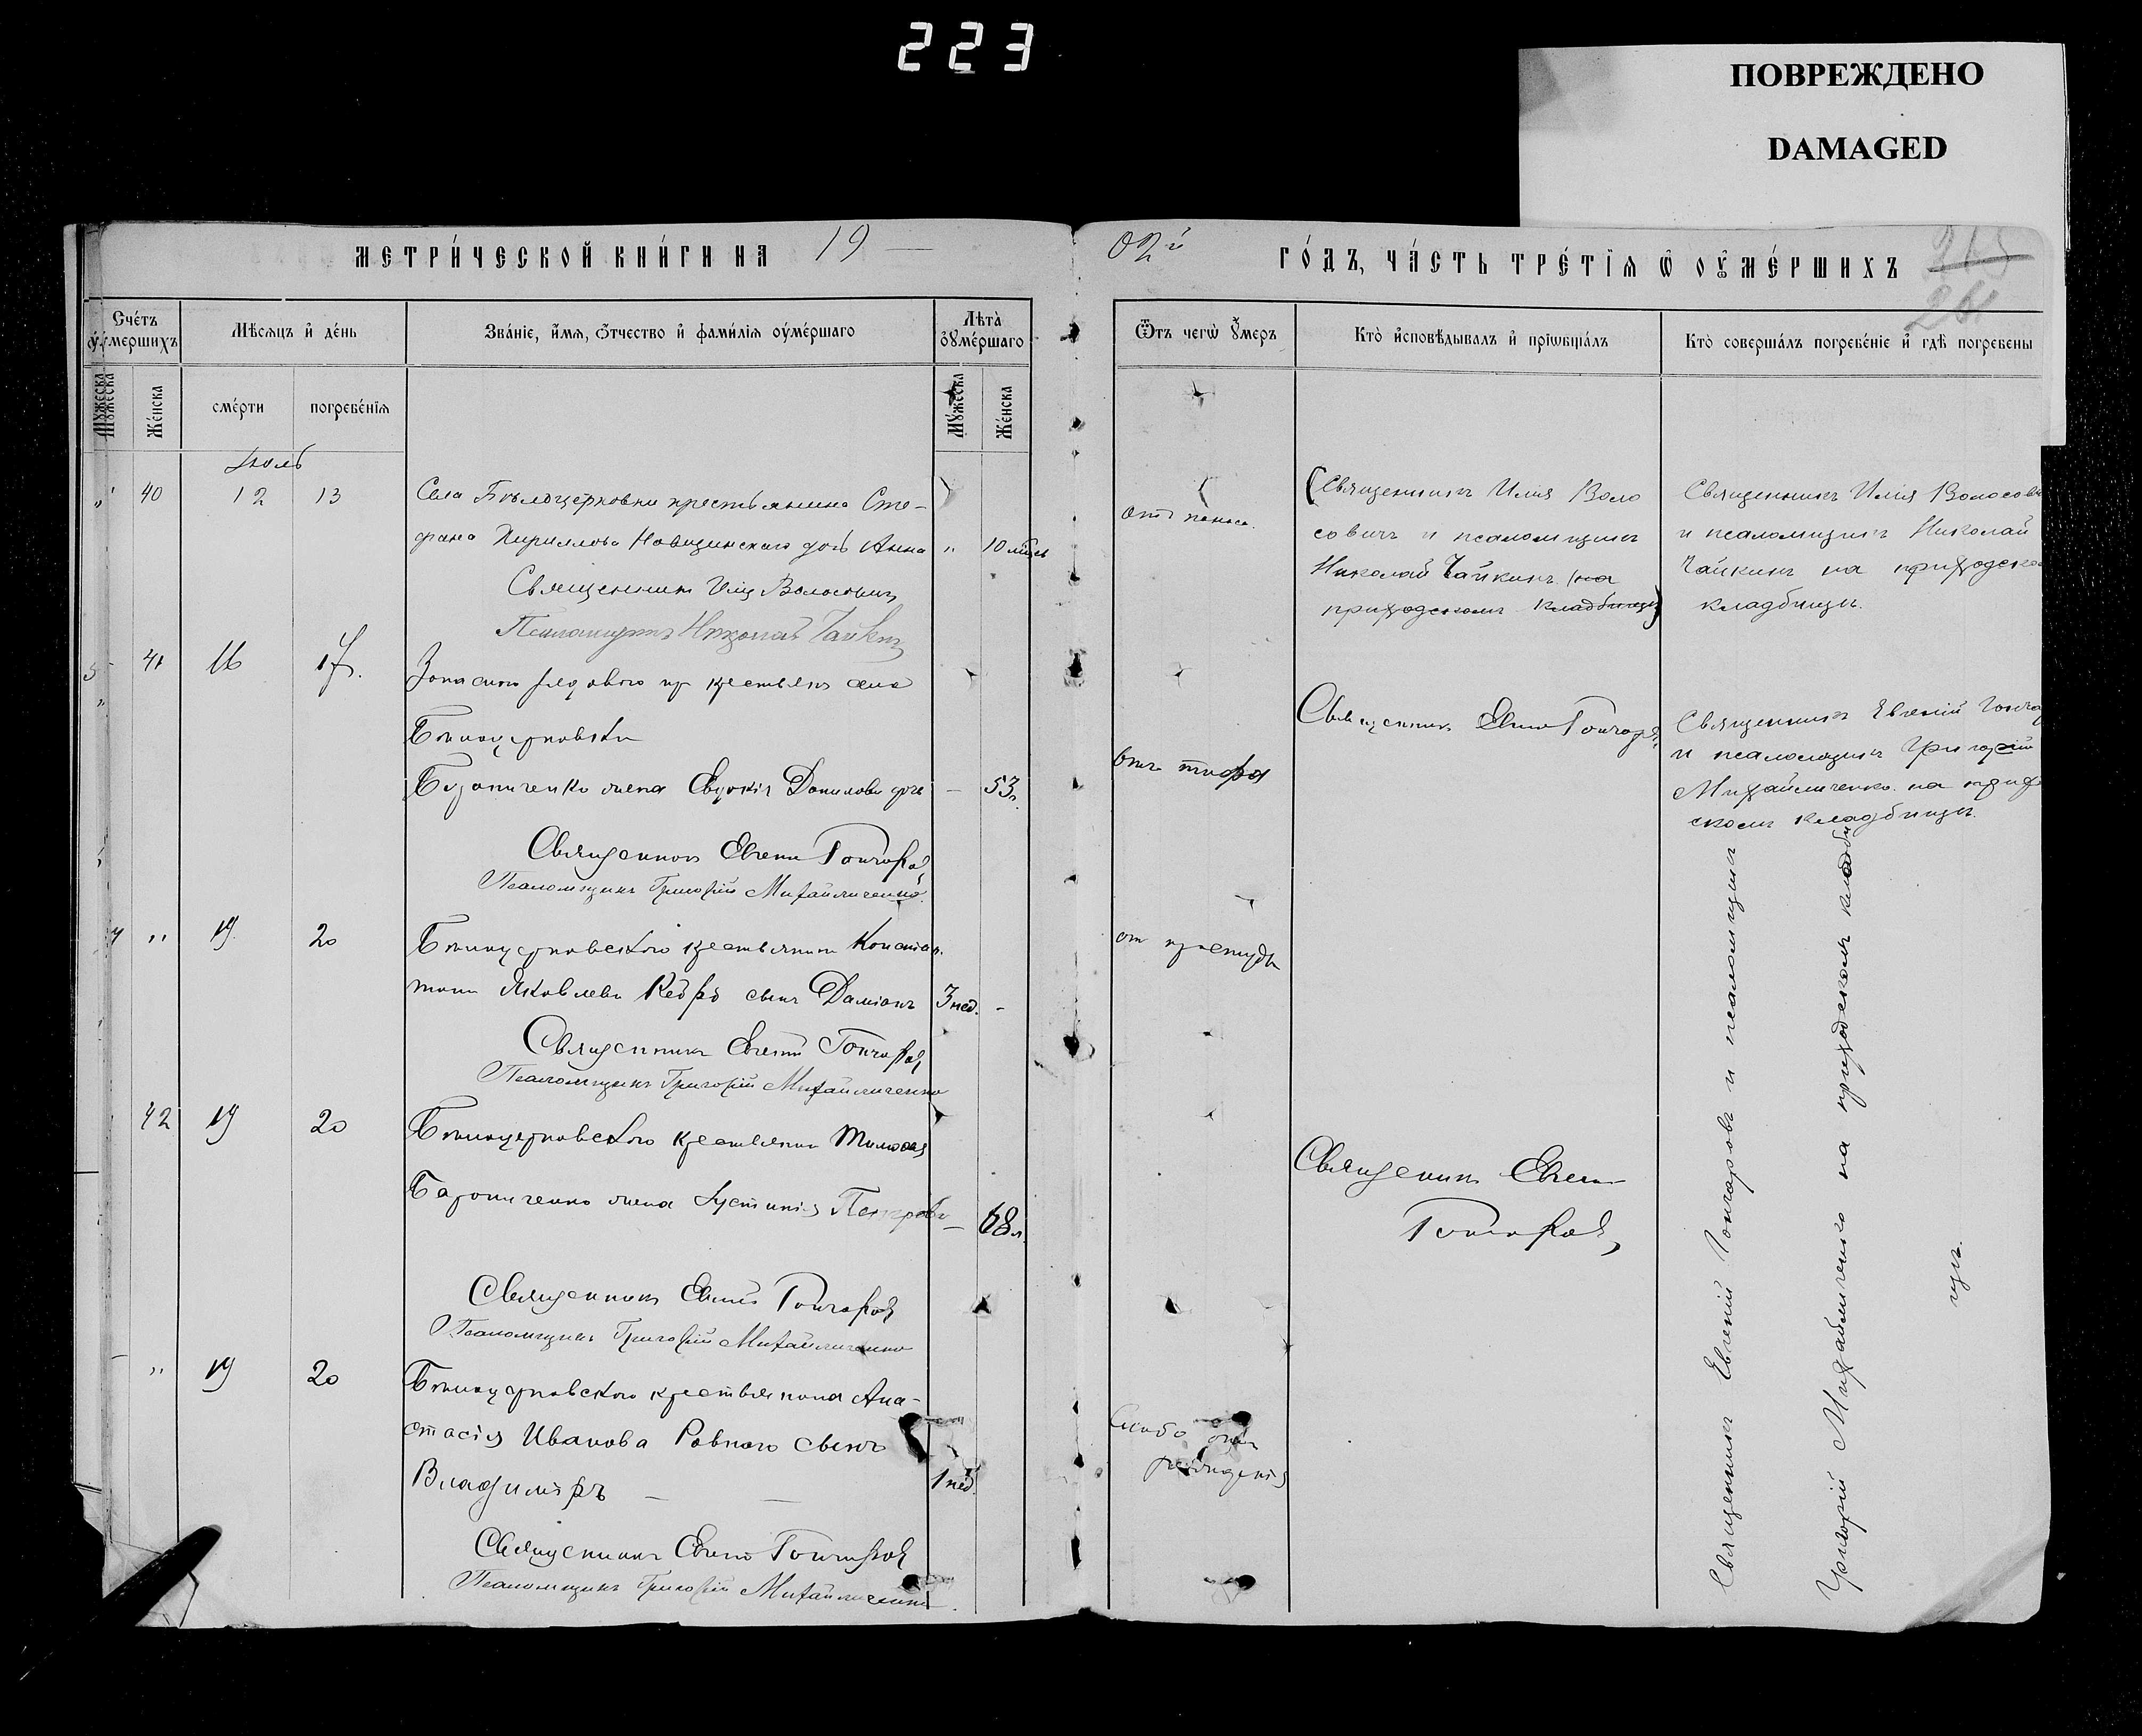 223
ПОВРЕЖДЕНО
DAMAGED
МЕТРИ́ЧЕСКОЙ КНИ́ГИ НА 19
02й
ГО́ДЪ, ЧА́СТЬ ТРЕ́ТІѦ Ѿ ОУ҆МЕ́РШИХЪ
215
Счéтъ оу҆мершихъ
Мѣсѧцъ и҆ дéнь
Звáнїе, и҆́мѧ, ѻ҆́тчество и҆ фамилїѧ оу҆мéршаго
Лѣтà оу҆мéршаго
Ѿ чегѡ̀ оу҆́меръ
Ктò и҆сповѣ́дывалъ и҆ прїѡбщáлъ
Ктò совершáлъ погребéнїе и҆ гдѣ̀ погребены
Мꙋ́жеска
Же́нска
смéрти
погребéнїѧ
Мꙋ́жеска
Же́нска
Іюль
" 40 12 13
Села Бѣлоцерковки крестьянина Сте-
фана Кириллова Новицинскаго дочь Анна " 10 мѣс
Священникъ Илія Волосовичъ
Псаломщикъ Николай Чайкинъ
отъ поноса.
(Священникъ Илія Воло
совичъ и псаломщикъ
Николай Чайкинъ (на
приходскомъ кладбищѣ)
Священникъ Илія Волосови
и псаломщикъ Николай
Чайкинъ на приходско
кладбищѣ.
41 16 17.
Запасного рядового крестьян села
Бѣлоцерковки
жена Евдокія Данилова дочь — 53 л.
Священникъ Евгеній Гончаровъ
Псаломщикъ Григорій Михайличенко
отъ тифа
Священникъ Евгеній Гончаровъ
Священникъ Евгеній Гончар
и псаломщикъ Григорій
Михайличенко на приход
скомъ кладбищѣ.
" 19 20
Бѣлоцерковского крестьянина Констан
тина Яковлева сынъ Даміанъ 3 нед. -
Священникъ Евгеній Гончаровъ
Псаломщикъ Григорій Михайличенко
от простуды
42 19 20
Бѣлоцерковского крестьянина Тимофея
жена Іустинія Петрова — 68 л.
Священникъ Евгеній Гончаровъ
Псаломщикъ Григорій Михайличенко
Священникъ Евгеній
Гончаровъ
" 19 20
Бѣлоцерковского крестьянина Ана-
стасія Иванова Ровного сынъ
Владиміръ — — 1 нед.
Священникъ Евгеній Гончаровъ
Псаломщикъ Григорій Михайличенко
Слабо отъ
рожденія
Священникъ Евгеній Гончаровъ и псаломщикъ
Григорій Михайличенко на приходскомъ кладби
щѣ.